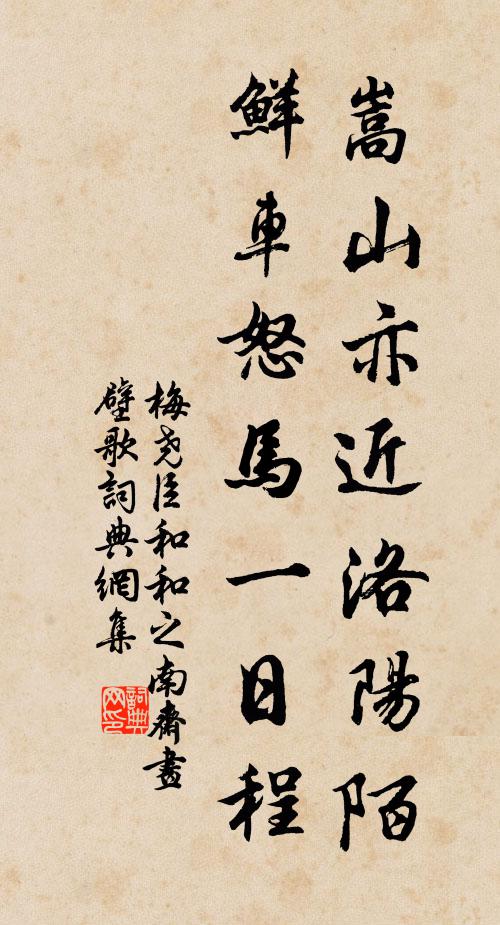 嵩山亦近洛陽陌
鮮車怒馬一日程
梅尧臣和和之南齋畫
壁歌詞典網集
詞典
网印